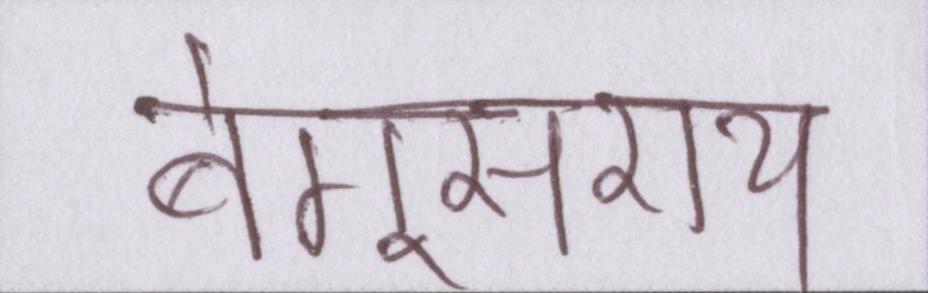 बेगूसराय